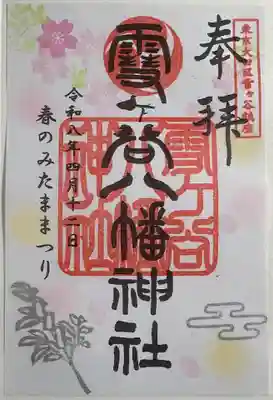 奉拝
東京大田区雪ヶ谷鎮座
雪ヶ谷八幡神社
雪ヶ谷
八幡
神社
令和八年四月十二日
春のみたままつり